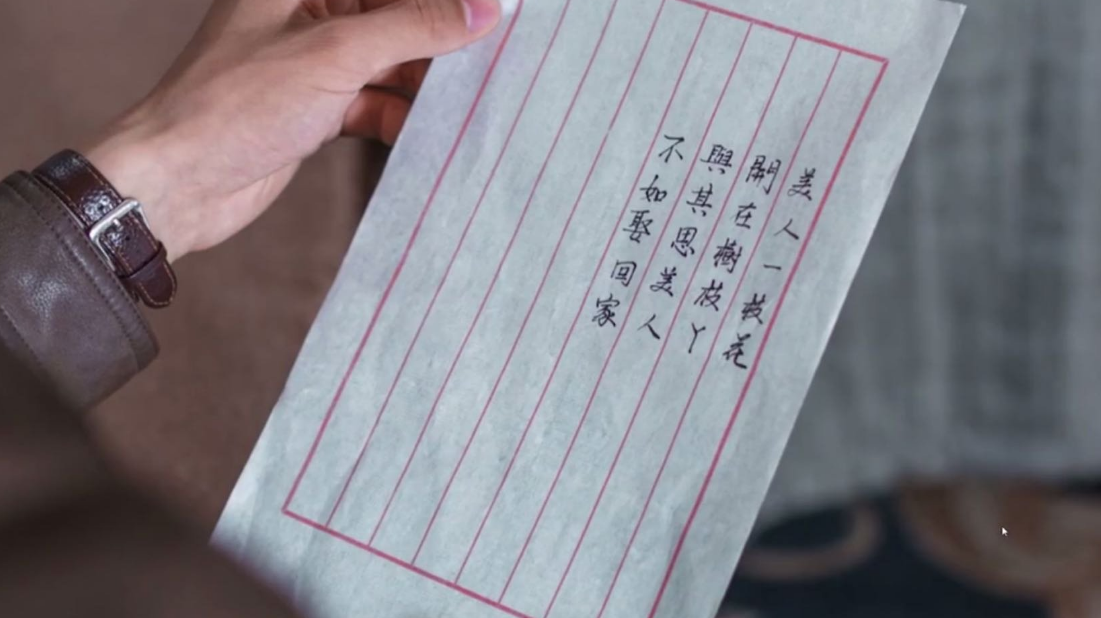 美人一枝花
開在樹枝丫
與其思美人
不如娶回家